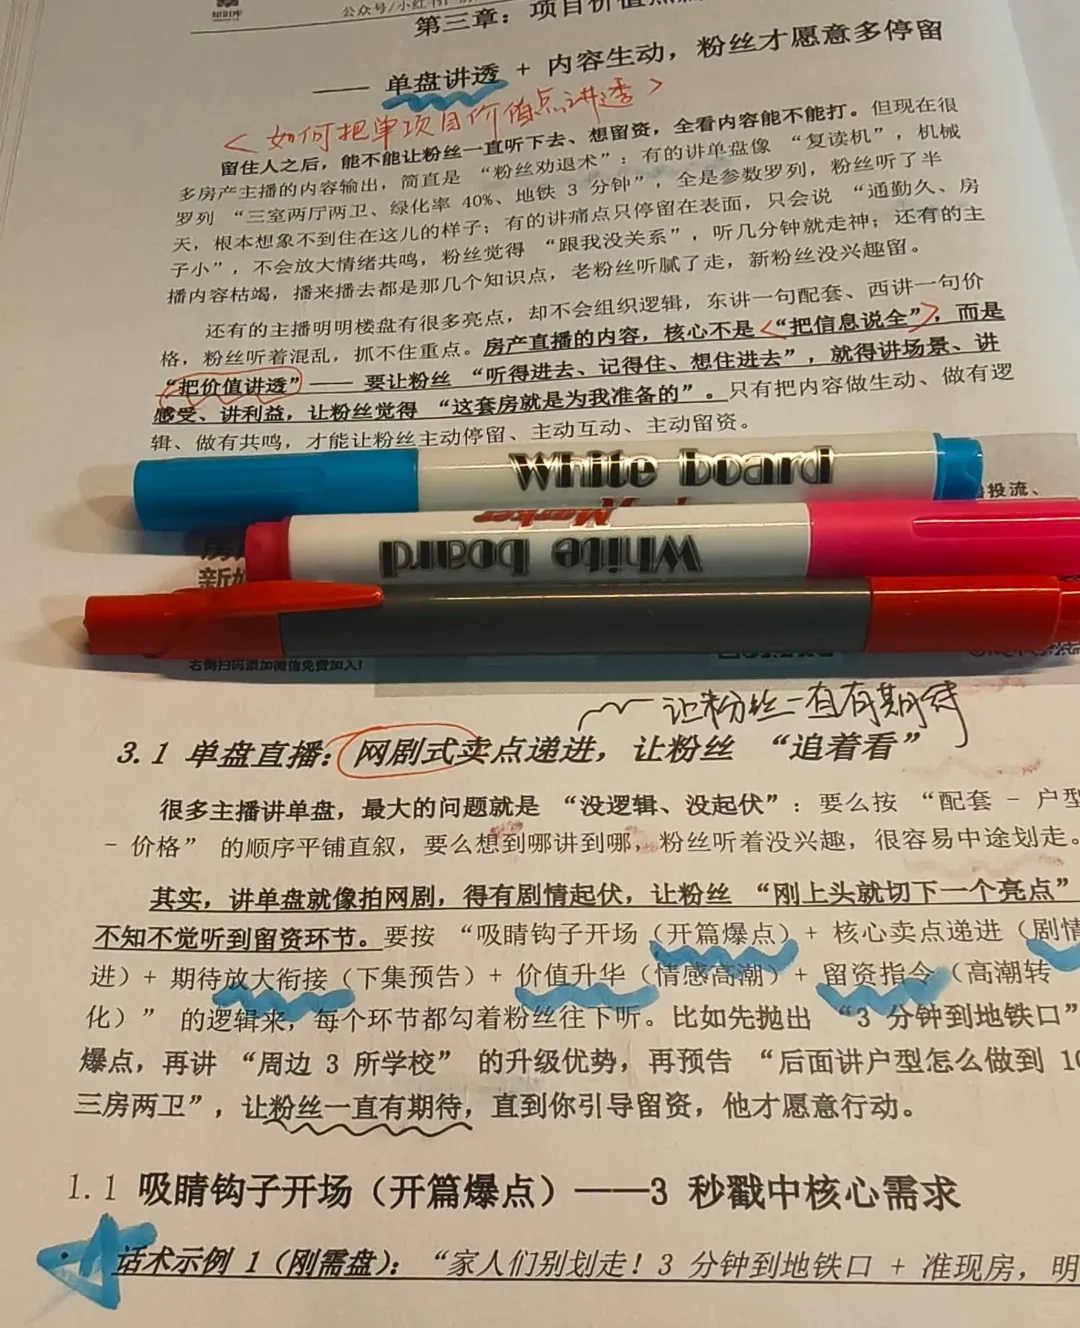 知识库
公众号/小红书
第三章：项目价值点
—— 单盘讲透 + 内容生动，粉丝才愿意多停留
<如何把单项目价值点讲透>
留住人之后，能不能让粉丝一直听下去、想留资，全看内容能不能打。但现在很
多房产主播的内容输出，简直是“粉丝劝退术”：有的讲单盘像“复读机”，机械
罗列“三室两厅两卫、绿化率 40%、地铁 3 分钟”，全是参数罗列，粉丝听了半
天，根本想象不到住在这儿的样子；有的讲痛点只停留在表面，只会说“通勤久、房
子小”，不会放大情绪共鸣，粉丝觉得“跟我没关系”，听几分钟就走神；还有的主
播内容枯竭，播来播去都是那几个知识点，老粉丝听腻了走，新粉丝没兴趣留。
还有的主播明明楼盘有很多亮点，却不会组织逻辑，东讲一句配套、西讲一句价
格，粉丝听着混乱，抓不住重点。房产直播的内容，核心不是“把信息说全”，而是
“把价值讲透”—— 要让粉丝“听得进去、记得住、想住进去”，就得讲场景、讲
感受、讲利益，让粉丝觉得“这套房就是为我准备的”。只有把内容做生动、做有逻
辑、做有共鸣，才能让粉丝主动停留、主动互动、主动留资。
White board
投流、
Marker
White board
新
右侧扫码添加微信免费加入！
让粉丝一直有期待
3.1 单盘直播：网剧式卖点递进，让粉丝“追着看”
很多主播讲单盘，最大的问题就是“没逻辑、没起伏”：要么按“配套 - 户型
- 价格”的顺序平铺直叙，要么想到哪讲到哪，粉丝听着没兴趣，很容易中途划走。
其实，讲单盘就像拍网剧，得有剧情起伏，让粉丝“刚上头就切下一个亮点”
不知不觉听到留资环节。要按“吸睛钩子开场（开篇爆点）+ 核心卖点递进（剧情
进）+ 期待放大衔接（下集预告）+ 价值升华（情感高潮）+ 留资指令（高潮转
化）”的逻辑来，每个环节都勾着粉丝往下听。比如先抛出“3 分钟到地铁口”
爆点，再讲“周边 3 所学校”的升级优势，再预告“后面讲户型怎么做到 10
三房两卫”，让粉丝一直有期待，直到你引导留资，他才愿意行动。
1.1 吸睛钩子开场（开篇爆点）——3 秒戳中核心需求
· 话术示例 1（刚需盘）：“家人们别划走！3 分钟到地铁口 + 准现房，明